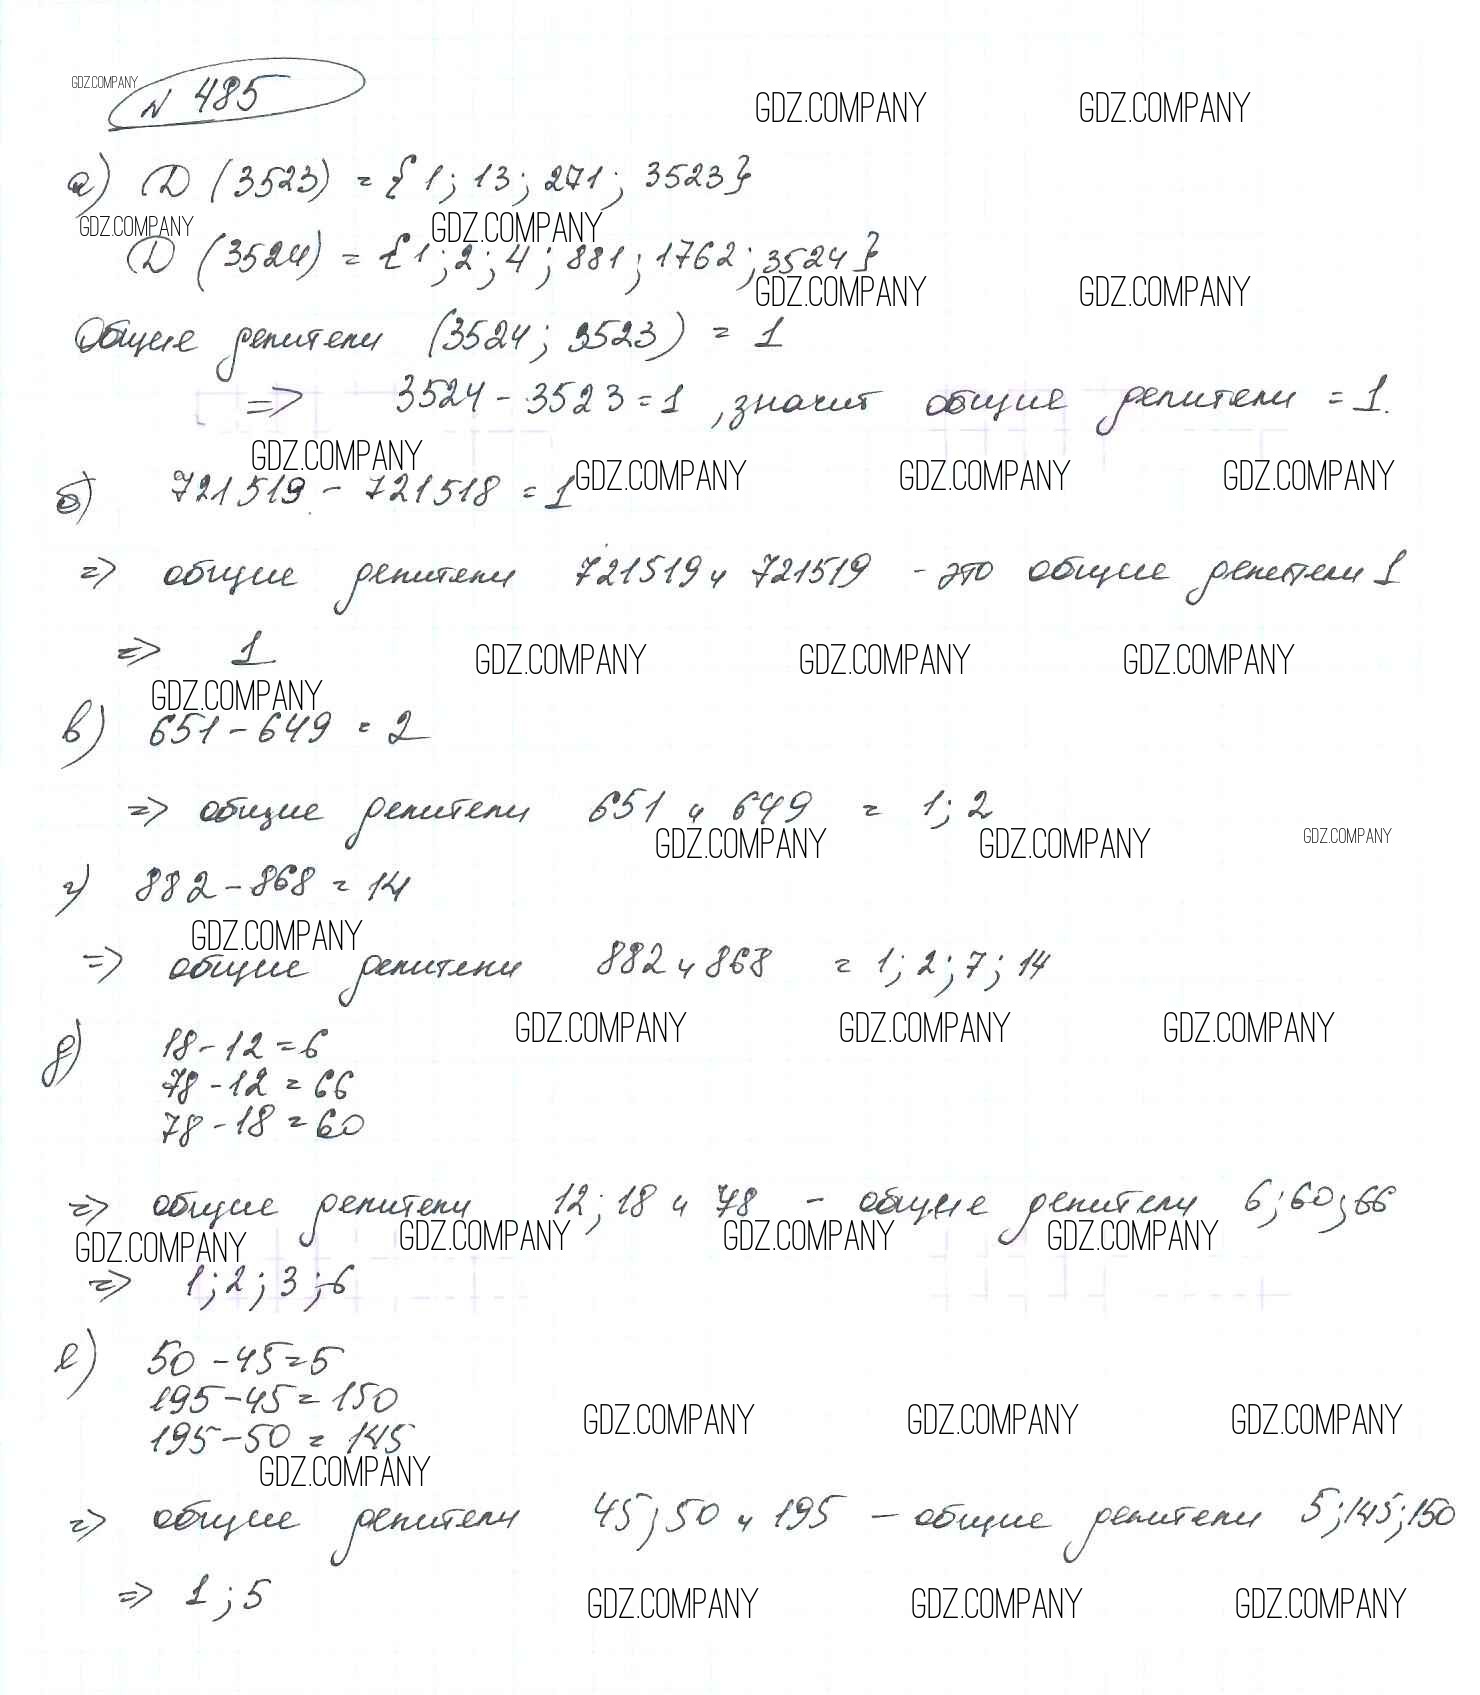 GDZ.COMPANY
N 485
GDZ.COMPANY GDZ.COMPANY
а) D (3523) = {1; 13; 271; 3523}
GDZ.COMPANY GDZ.COMPANY
D (3524) = {1; 2; 4; 881; 1762; 3524}
GDZ.COMPANY GDZ.COMPANY
Общие делители (3524; 3523) = 1
=> 3524 - 3523 = 1, значит общие делители = 1.
GDZ.COMPANY GDZ.COMPANY GDZ.COMPANY GDZ.COMPANY
б) 721519 - 721518 = 1
=> общие делители 721519 и 721519 - это общие делители 1
=> 1
GDZ.COMPANY GDZ.COMPANY GDZ.COMPANY
GDZ.COMPANY
в) 651 - 649 = 2
=> общие делители 651 и 649 = 1; 2
GDZ.COMPANY GDZ.COMPANY GDZ.COMPANY
г) 882 - 868 = 14
GDZ.COMPANY
=> общие делители 882 и 868 = 1; 2; 7; 14
GDZ.COMPANY GDZ.COMPANY GDZ.COMPANY
д) 18 - 12 = 6
78 - 12 = 66
78 - 18 = 60
=> общие делители 12; 18 и 78 - общие делители 6; 60; 66
GDZ.COMPANY GDZ.COMPANY GDZ.COMPANY GDZ.COMPANY
=> 1; 2; 3; 6
е) 50 - 45 = 5
195 - 45 = 150
GDZ.COMPANY GDZ.COMPANY GDZ.COMPANY
195 - 50 = 145
GDZ.COMPANY
=> общие делители 45; 50 и 195 - общие делители 5; 145; 150
=> 1; 5
GDZ.COMPANY GDZ.COMPANY GDZ.COMPANY